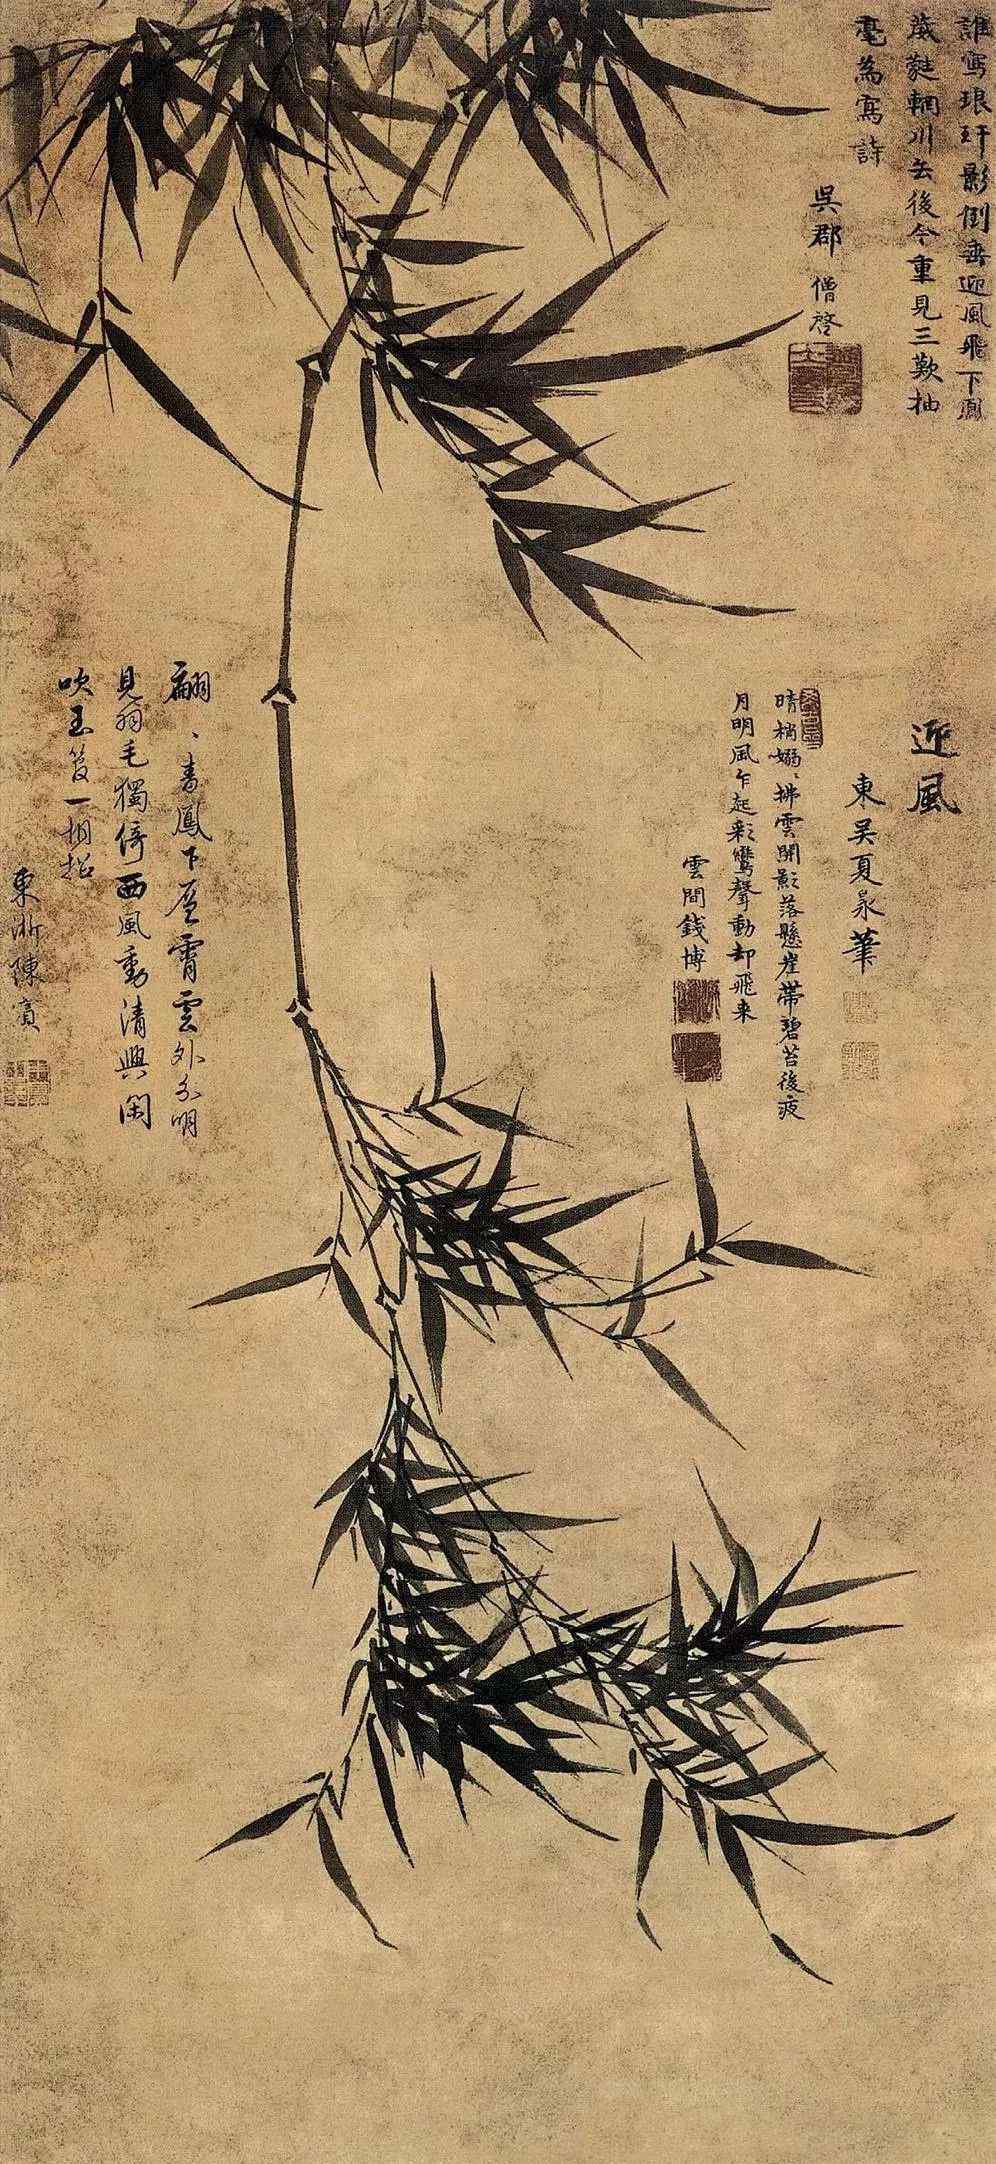 誰寫琅玕影倒垂迎風飛下鳳
葳蕤輞川去後今重見三歎抽
毫為寫詩
吳郡僧啓
迎風
東吳夏㫤筆
晴梢嫋ゝ拂雲開影落懸崖帶碧苔後夜
月明風乍起彩鸞聲動却飛来
雲間錢博
翩ゝ青鳳下層霄雲外分明
見羽毛獨倚西風動清興閑
吹玉笙一相招
東浙陳賓